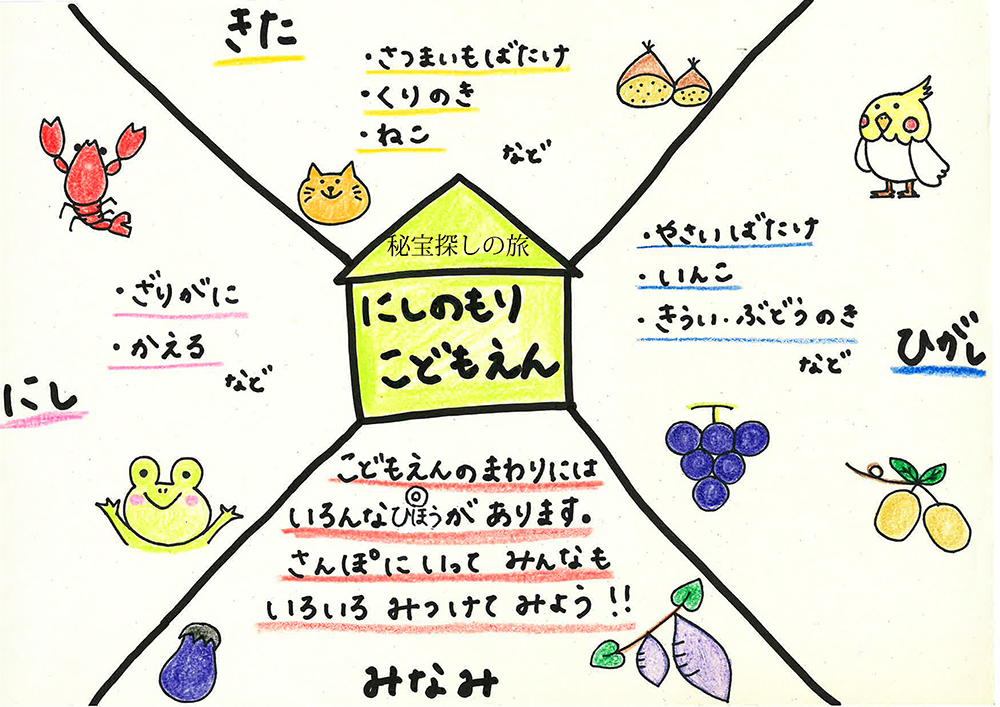 きた
・さつまいもばたけ
・くりのき
・ねこ
など
秘宝探しの旅
にしのもり
こどもえん
・ざりがに
・かえる
など
にし
・やさいばたけ
・いんこ
・きうい・ぶどうのき
など
ひがし
こどもえんのまわりには
いろんなひほうがあります。
さんぽにいって みんなも
いろいろ みつけて みよう!!
みなみ